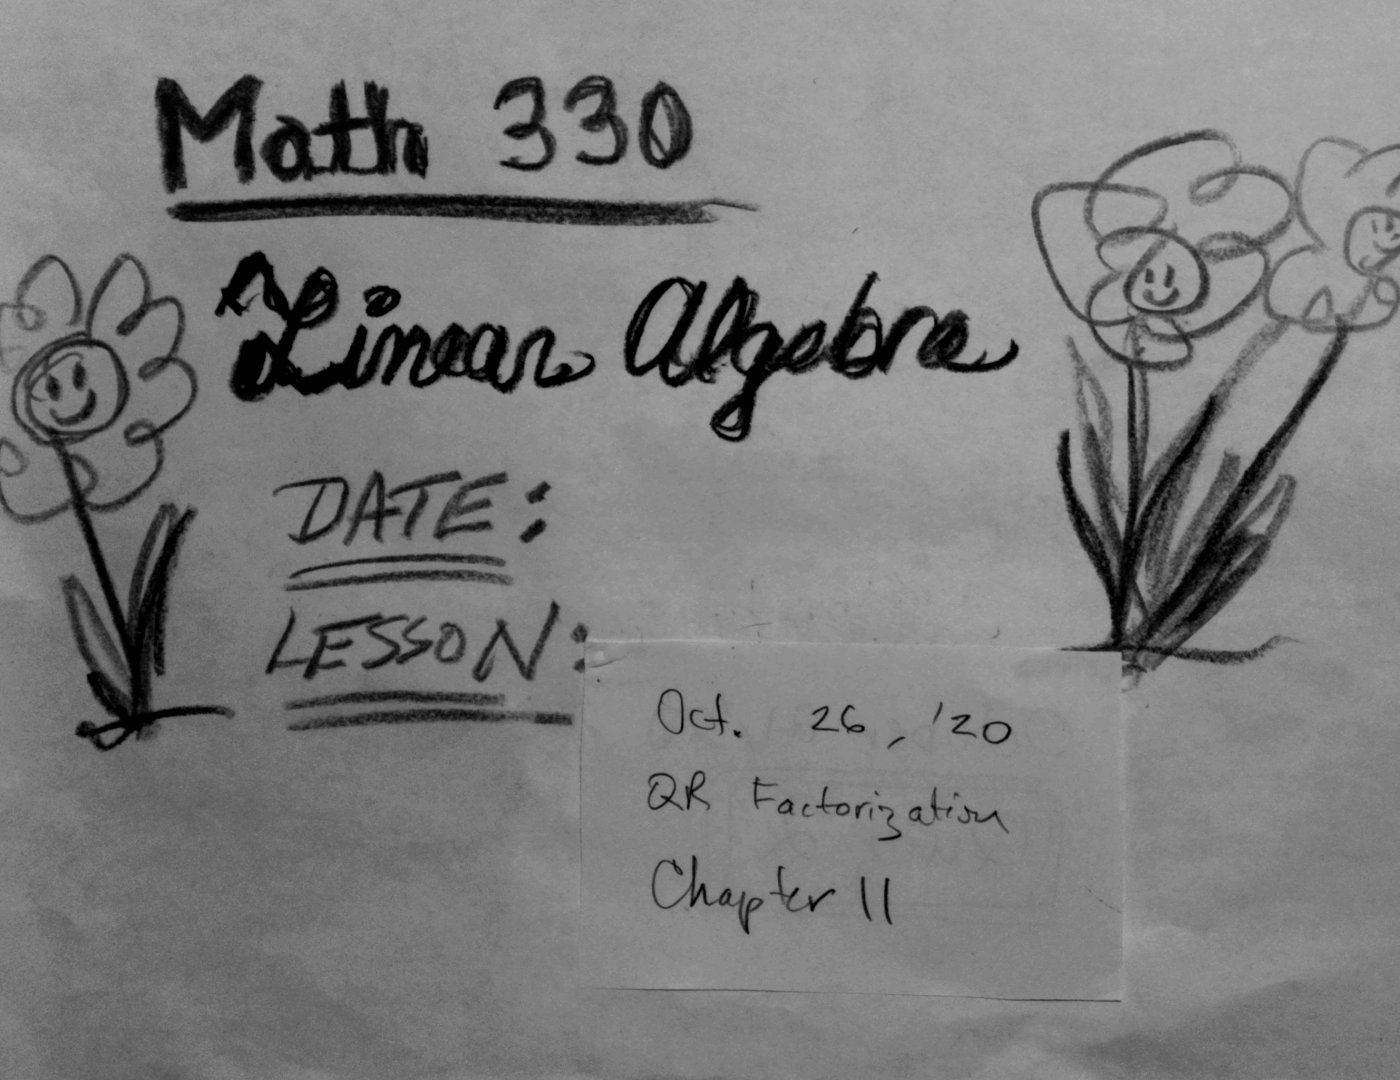 Math 330
Linear Algebra
DATE:
LESSON:
Oct. 26, '20
QR Factorization
Chapter 11